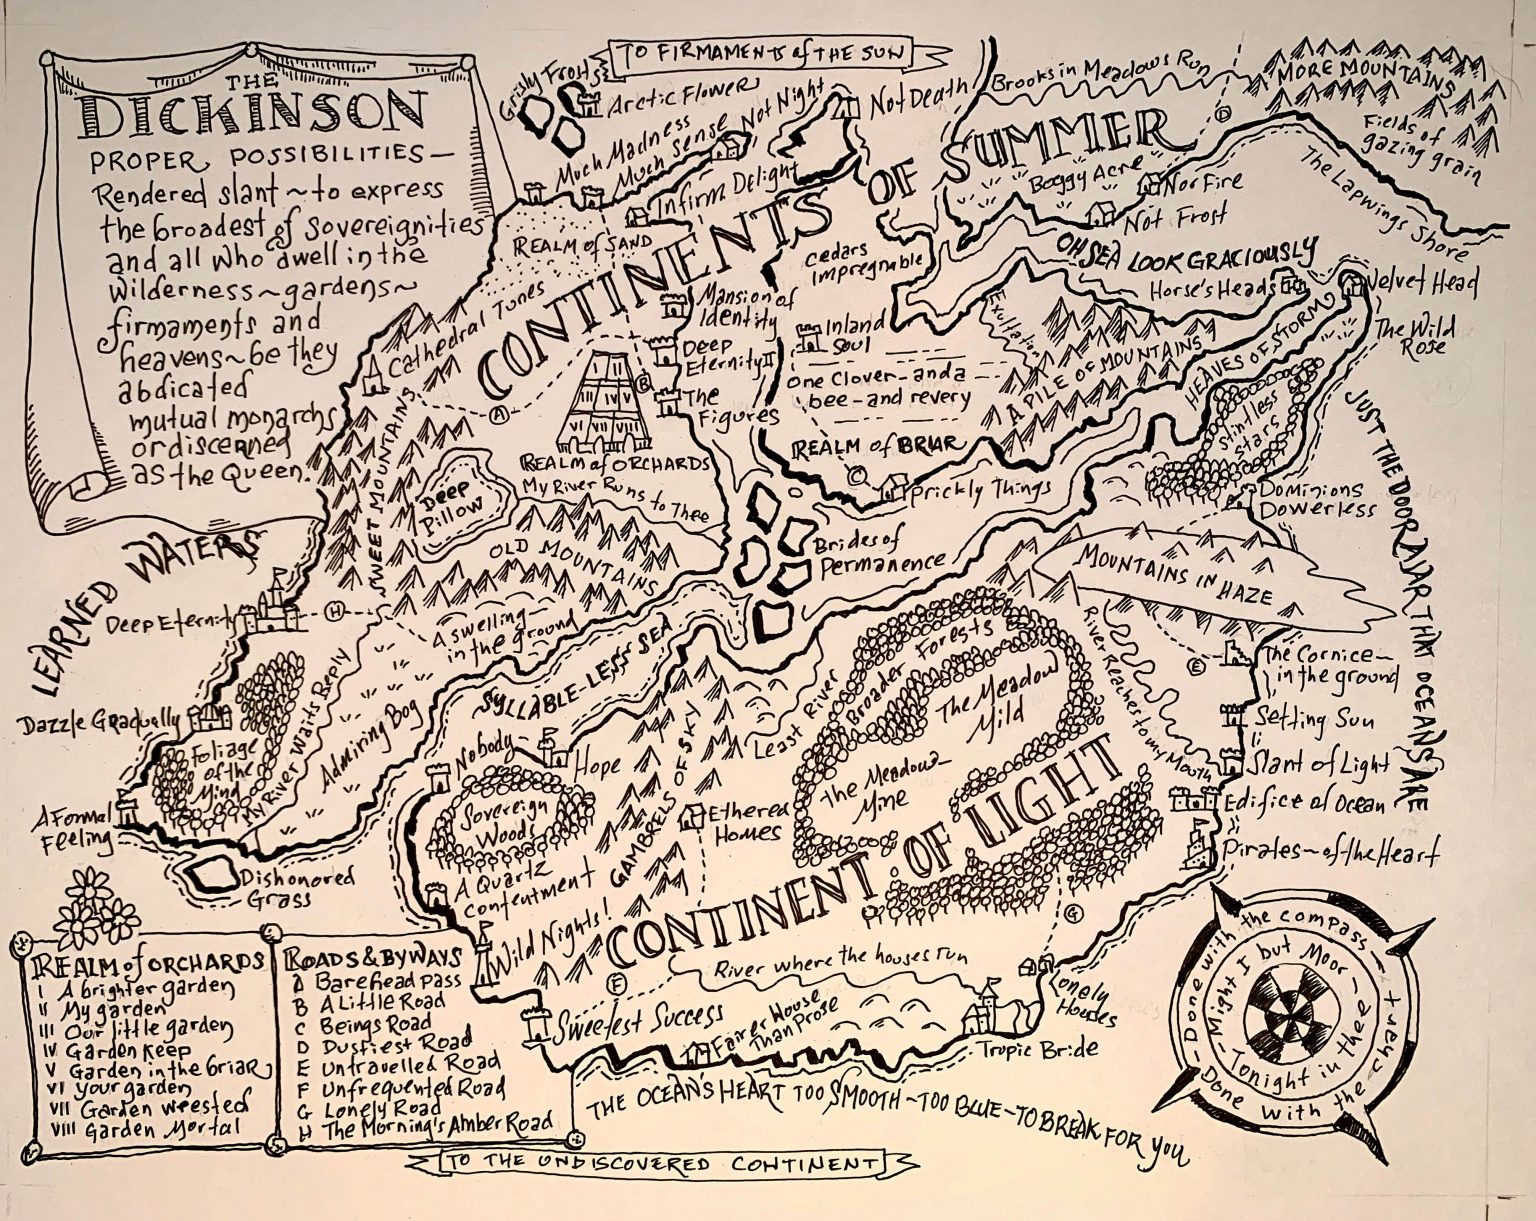 THE
DICKINSON
PROPER POSSIBILITIES—
Rendered slant~to express
the broadest of Sovereignities
and all who dwell in the
wilderness~gardens~
firmaments and
heavens~be they
abdicated
mutual monarchs
or discerned
as the Queen.
TO FIRMAMENTS of THE SUN
Grisly Frosts
Arctic Flower
Much Madness
Much Sense
Not Night
Not Death
Infirm Delight
Brooks in Meadows Run
MORE MOUNTAINS
Fields of
gazing grain
The Lapwings Shore
D
CONTINENTS OF SUMMER
Boggy Acre
Nor Fire
Not Frost
REALM of SAND
Cathedral Tunes
Cedars
Impregnable
OH SEA LOOK GRACIOUSLY
Horse's Heads
Velvet Head
The Wild
Rose
Mansion of
Identity
Deep
Eternity II
The
Figures
Inland
Soul
One Clover—and a
bee—and revery
Exultation
A PILE OF MOUNTAINS
HEAVES OF STORM
Stintless
Stars
JUST THE DOOR AJAR THAT OCEANS ARE
A
B
I II
III IV V
VI VII VIII
REALM of ORCHARDS
REALM of BRIAR
C
Prickly Things
My River Runs to Thee
SWEET MOUNTAINS
Deep
Pillow
OLD MOUNTAINS
Brides of
Permanence
Dominions
Dowerless
MOUNTAINS IN HAZE
LEARNED WATERS
Deep Eternity
H
A swelling—
in the ground
SYLLABLE-LESS SEA
Dazzle Gradually
Foliage
of the
Mind
My River Waits Reply
Admiring Bog
A Formal
Feeling
Dishonored
Grass
Nobody—
Hope
Sovereign
Woods
A Quartz
contentment
Wild Nights!
GAMBRELS OF SKY
Ethered
Homes
Least River
Broader Forests
The Meadow
Mild
The Meadow—
Mine
CONTINENT OF LIGHT
River Reaches to my Mouth
E
The Cornice—
in the ground
Setting Sun
Slant of Light
Edifice of Ocean
Pirates—of the Heart
G
F
River where the houses run
Lonely
Houses
Sweetest Success
Fairer House
Than Prose
Tropic Bride
THE OCEAN'S HEART TOO SMOOTH—TOO BLUE—TO BREAK FOR YOU
TO THE UNDISCOVERED CONTINENT
REALM of ORCHARDS
I A brighter garden
II My garden
III Our little garden
IV Garden Keep
V Garden in the Briar
VI Your garden
VII Garden wrested
VIII Garden Mortal
ROADS & BYWAYS
A Barehead pass
B A Little Road
C Beings Road
D Dustiest Road
E Untravelled Road
F Unfrequented Road
G Lonely Road
H The Morning's Amber Road
—Done with the compass—
Done with the chart
—Might I but Moor—
Tonight in thee